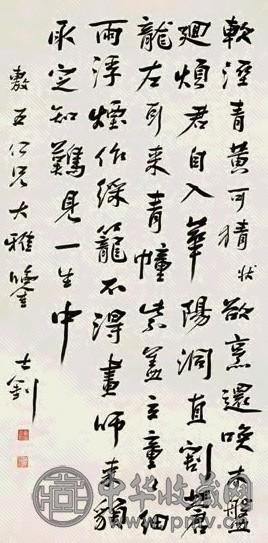 軟溼青黃可猜狀欲烹還喚木盤
廻煩君自入華陽洞直割乖
龍左耳來青幢紫蓋立童々細
雨浮煙作綵籠不得畫師來貌
取定知難見一生中
敷五仁兄大雅 士釗
中华收藏网